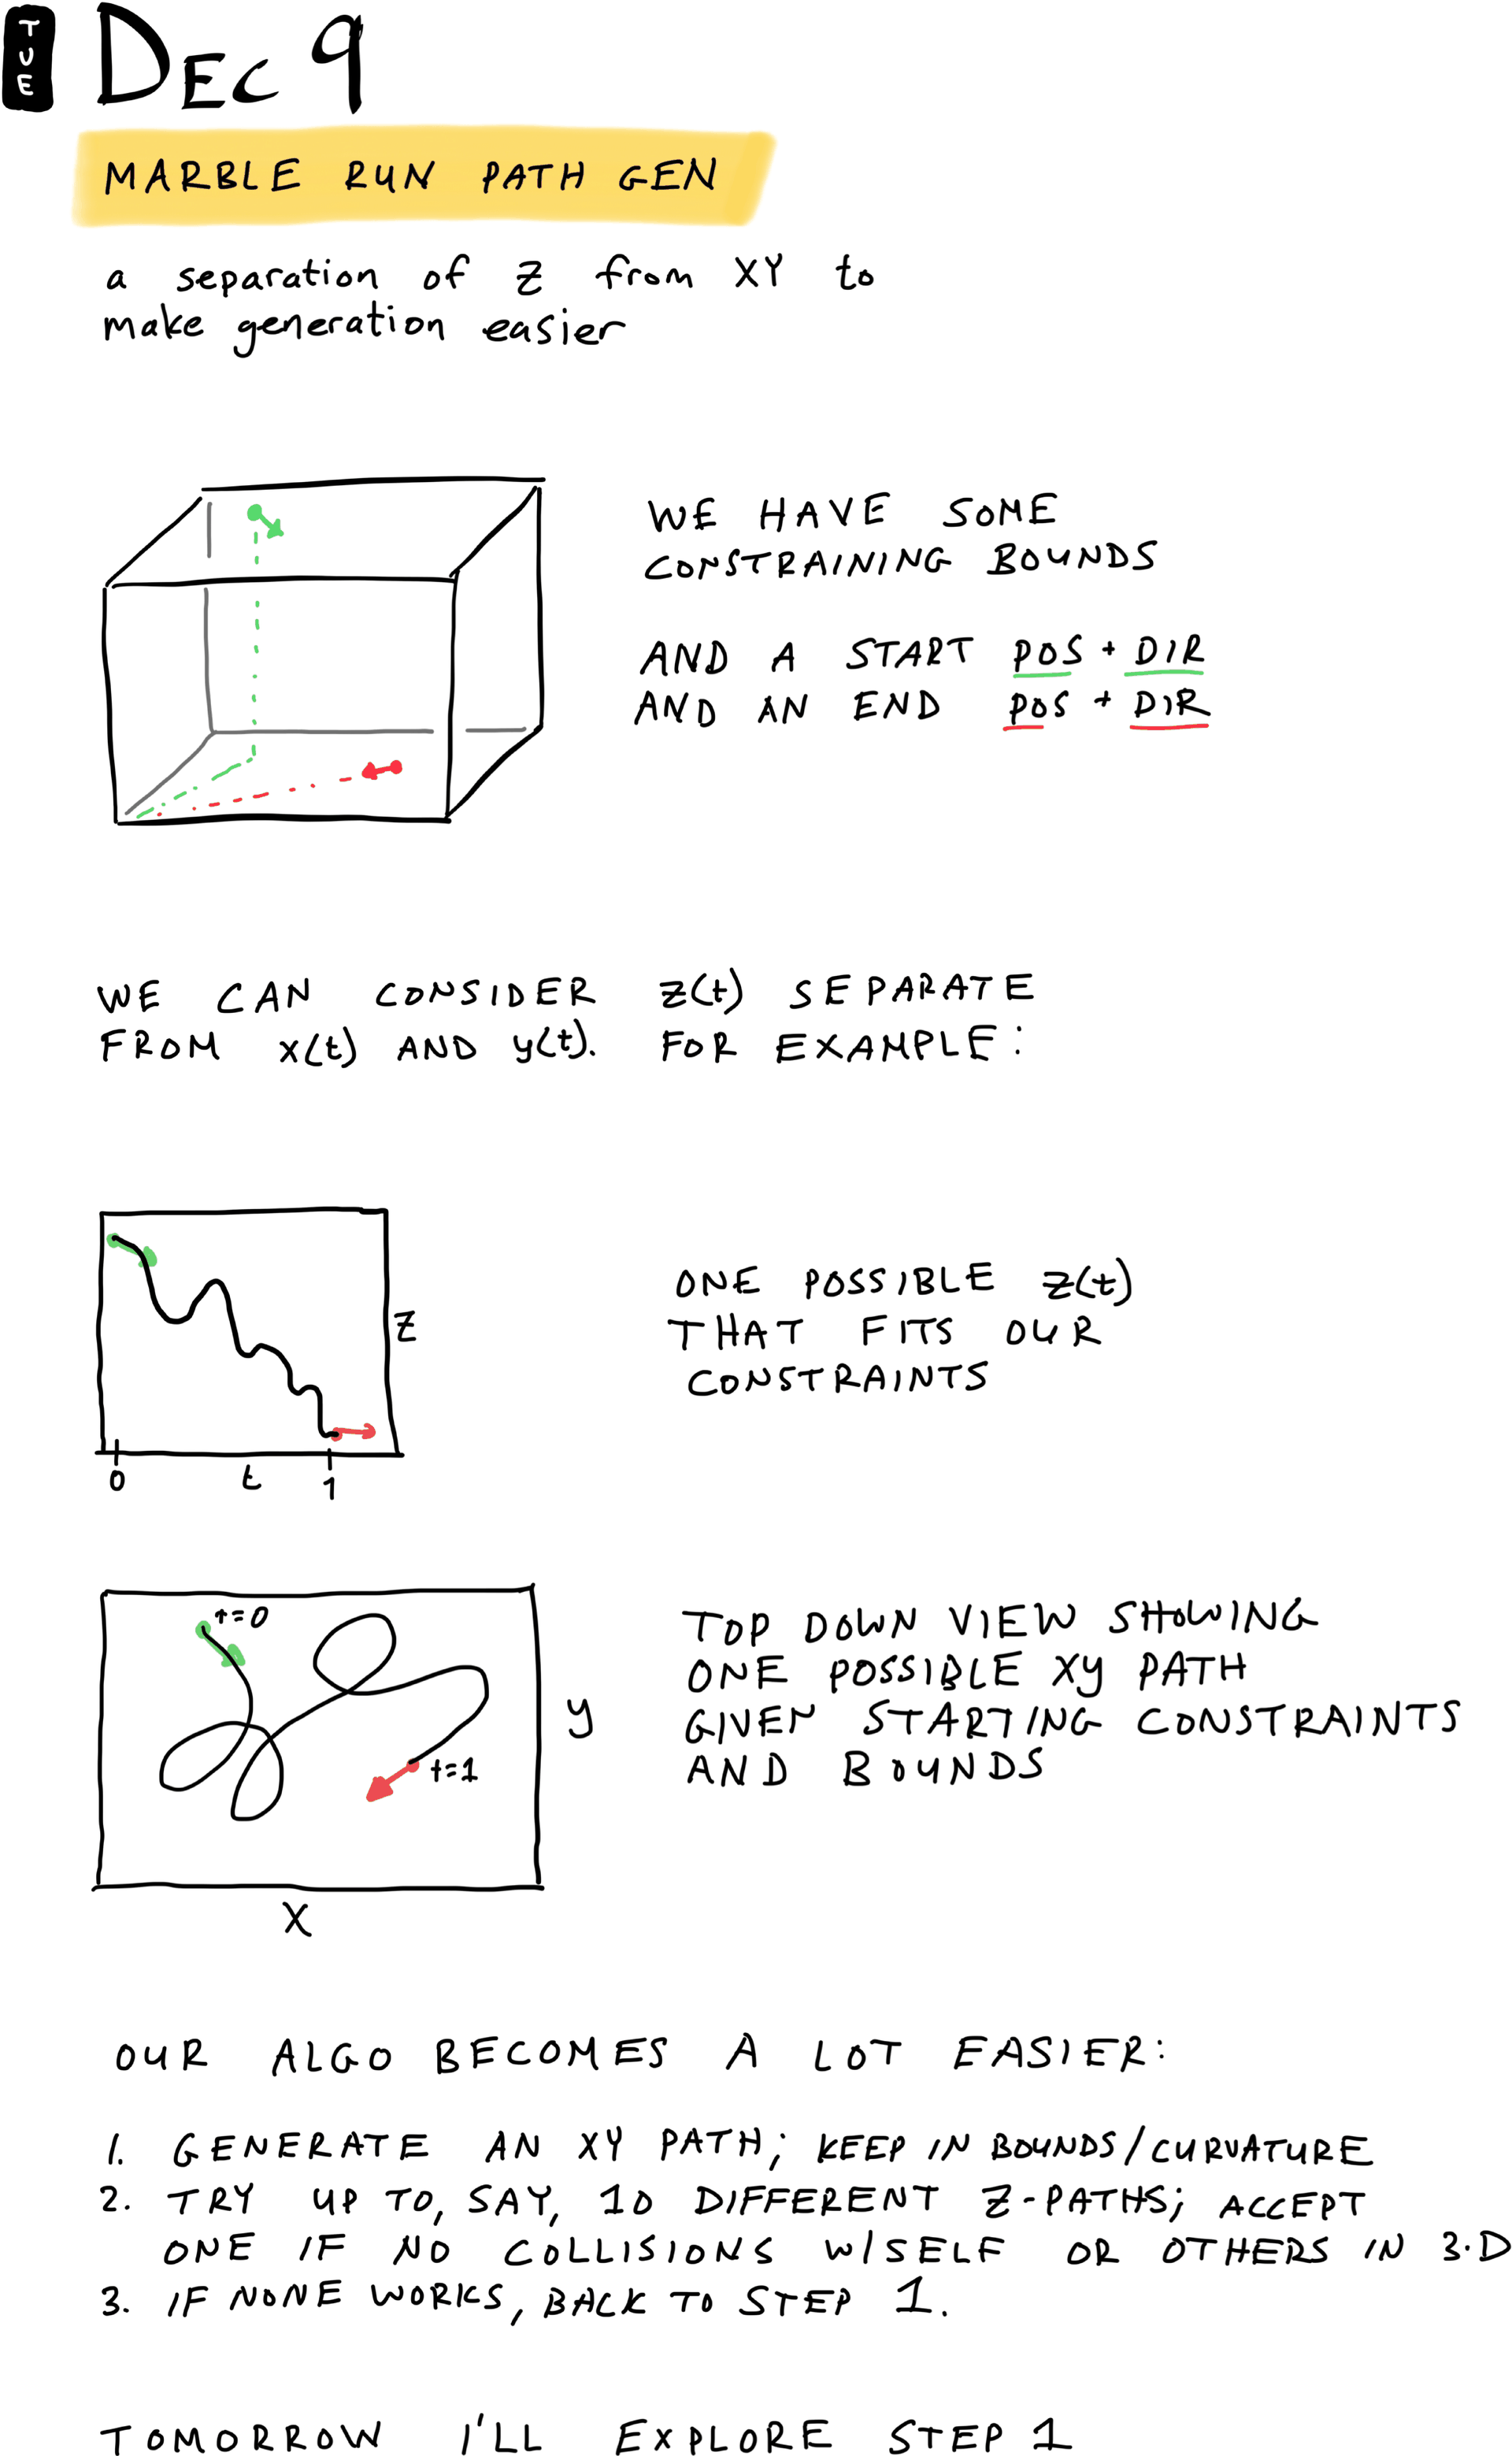 TUE
DEC 9
MARBLE RUN PATH GEN
a separation of z from XY to
make generation easier
WE HAVE SOME
CONSTRAINING BOUNDS
AND A START POS + DIR
AND AN END POS + DIR
WE CAN CONSIDER z(t) SEPARATE
FROM x(t) AND y(t). FOR EXAMPLE:
z
0 t 1
ONE POSSIBLE z(t)
THAT FITS OUR
CONSTRAINTS
t=0
t=1
y
X
TOP DOWN VIEW SHOWING
ONE POSSIBLE XY PATH
GIVEN STARTING CONSTRAINTS
AND BOUNDS
OUR ALGO BECOMES A LOT EASIER:
1. GENERATE AN XY PATH; KEEP IN BOUNDS/CURVATURE
2. TRY UP TO, SAY, 10 DIFFERENT Z-PATHS; ACCEPT
ONE IF NO COLLISIONS W/SELF OR OTHERS IN 3-D
3. IF NONE WORKS, BACK TO STEP 1.
TOMORROW I'LL EXPLORE STEP 1